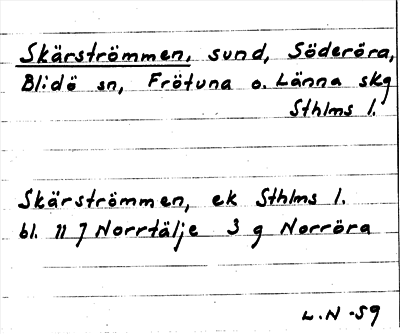 Skärströmmen, sund, Söderöra,
Blidö sn, Frötuna o. Länna skg
Sthlms l.
Skärströmmen, ek Sthlms l.
bl. 11 7 Norrtälje 3 g Norröra
L.N -59